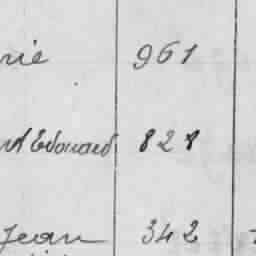 rie 961
Edouard 828
Jean 342